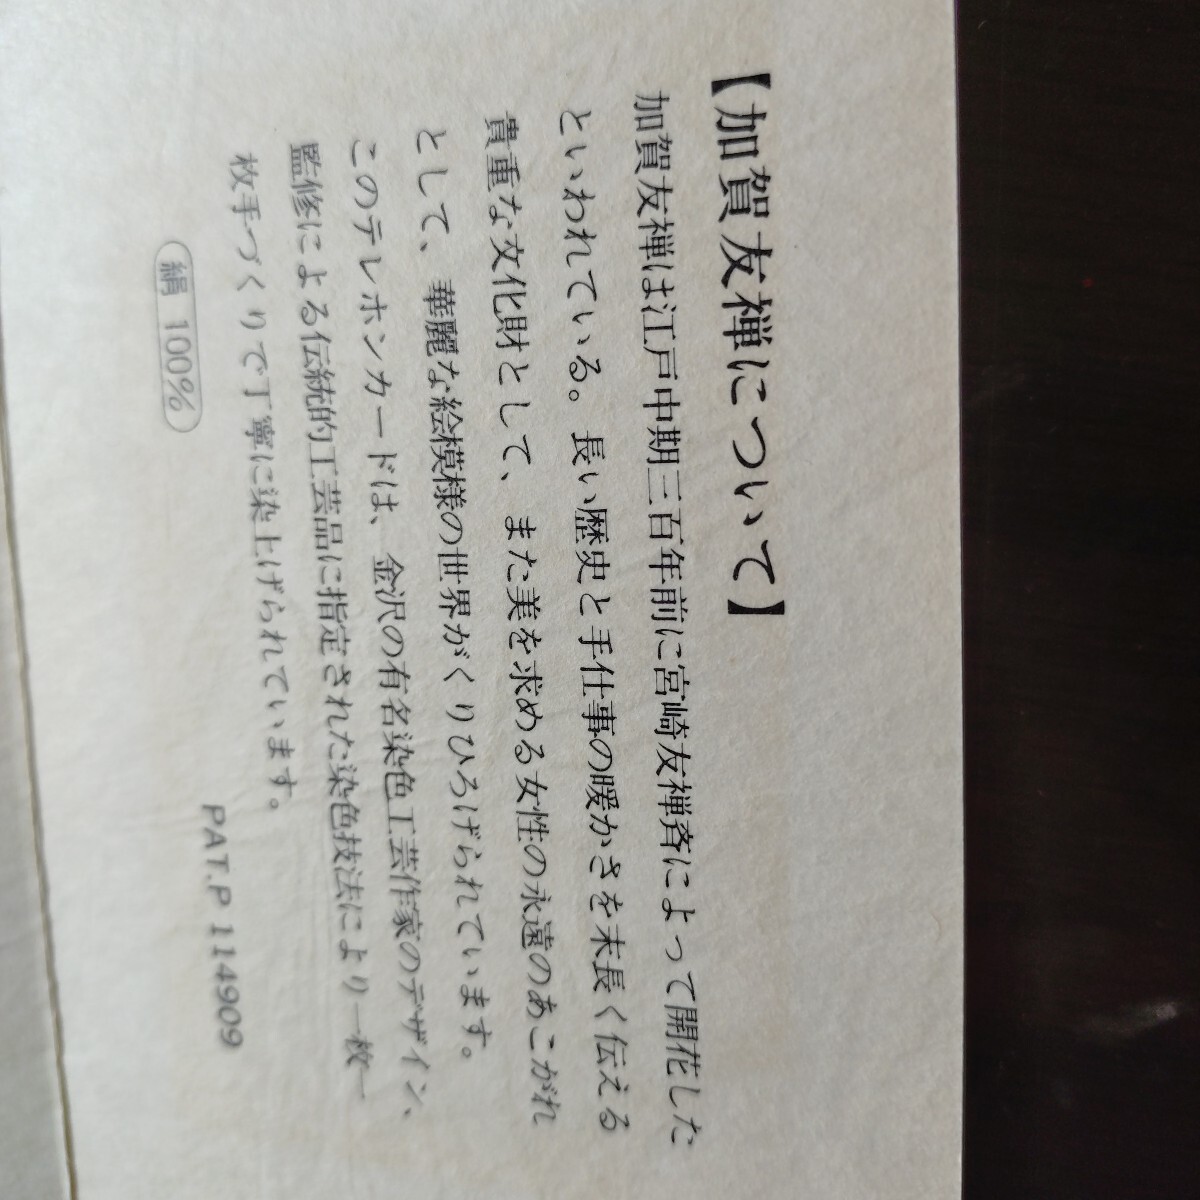 【加賀友禅について】
加賀友禅は江戸中期三百年前に宮崎友禅斉によって開花した
といわれている。長い歴史と手仕事の暖かさを末長く伝える
貴重な文化財として、また美を求める女性の永遠のあこがれ
として、華麗な絵模様の世界がくりひろげられています。
このテレホンカードは、金沢の有名染色工芸作家のデザイン、
監修による伝統的工芸品に指定された染色技法により一枚一
枚手づくりで丁寧に染上げられています。
PAT.P 114909
絹 100%